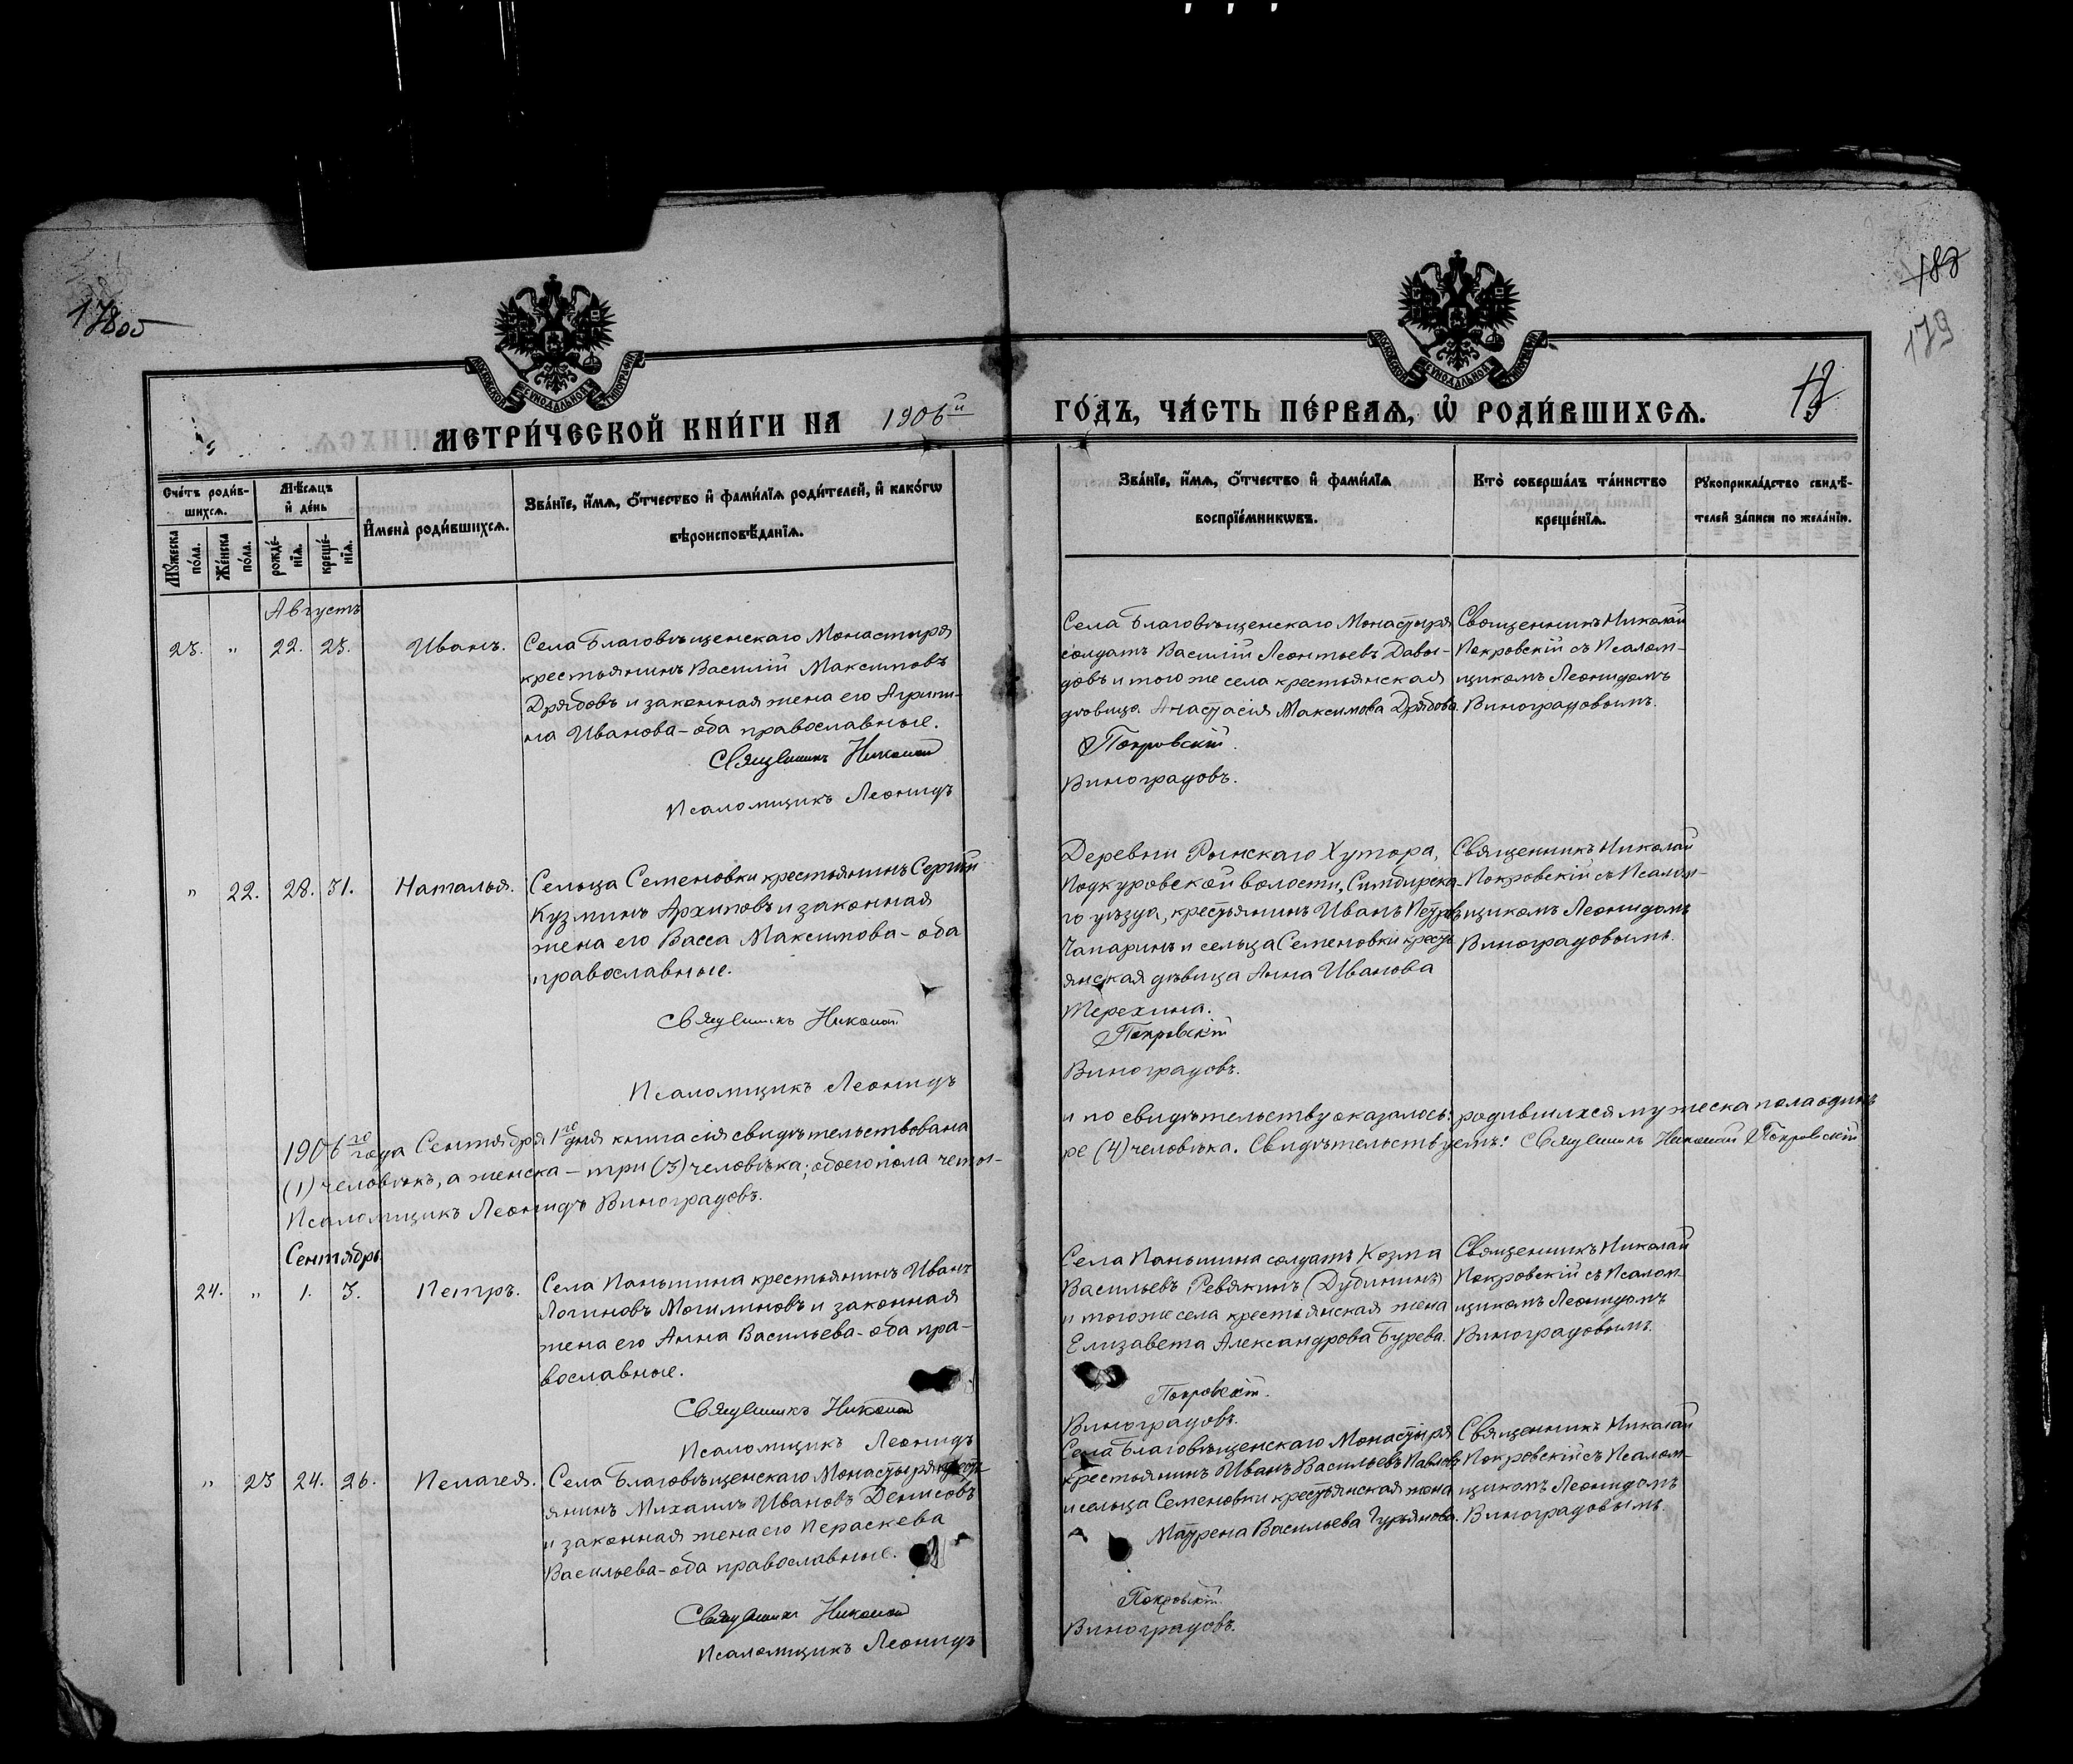 188
179
МОСКОВСКОЙ СѴНОДАЛЬНОЙ ТИПОГРАФІИ
МОСКОВСКОЙ СѴНОДАЛЬНОЙ ТИПОГРАФІИ
МЕТРИ́ЧЕСКОЙ КНИ́ГИ НА 1906й
ГО́ДЪ, ЧА́СТЬ ПЕ́РВАѦ, Ѡ҆ РОДИ́ВШИХСѦ.
Сче́тъ роди́в-
шихсѧ.
Мꙋ́жеска по́ла.
Же́нска по́ла.
Мѣ́сѧцъ
и҆ де́нь
рожде́-
нїѧ.
креще́-
нїѧ.
И҆мена̀ роди́вшихсѧ.
Зва́нїе, и҆́мѧ, ѻ҆́тчество и҆ фами́лїѧ роди́телей, и҆ како́гѡ
вѣроисповѣ́данїѧ.
Зва́нїе, и҆́мѧ, ѻ҆́тчество и҆ фами́лїѧ
воспрїе́мникѡвъ.
Кто̀ соверша́лъ та́инство
креще́нїѧ.
Рꙋкоприкла́дство свидѣ́-
телей за́писи по жела́нїю.
Августъ
23. " 22. 23. Иванъ.
Села Благовѣщенскаго Монастыря
крестьянинъ Василій Максимовъ
Дрябовъ и законная жена его Агрипи-
на Иванова - оба православные.
Священникъ Николай
Псаломщикъ Леонидъ
Села Благовѣщенскаго Монастыря
солдатъ Василій Леонтьевъ Давы-
довъ и того же села крестьянская
дѣвица Анастасія Максимова Дрябова.
Покровскій.
Виноградовъ.
Священникъ Николай
Покровскій съ Псалом-
щикомъ Леонидомъ
Виноградовымъ.
" 22. 28. 31. Наталья.
Сельца Семеновки крестьянинъ Сергій
Кузминъ Архиповъ и законная
жена его Васса Максимова - оба
православные.
Священникъ Николай
Псаломщикъ Леонидъ
Деревни Рынскаго Хутора,
Подкуровской волости, Симбирска-
го уѣзда, крестьянинъ Иванъ Петровъ
Чапаринъ и сельца Семеновки кресть-
янская дѣвица Анна Иванова
Терехина.
Покровскій
Виноградовъ.
Священникъ Николай
Покровскій съ Псалом-
щикомъ Леонидомъ
Виноградовымъ.
1906го года Сентября 1го дня книга сія свидѣтельствована
и по свидѣтельству оказалось: родившихся мужеска пола одинъ
(1) человѣкъ, а женска - три (3) человѣка; обоего пола четы-
ре (4) человѣка. Свидѣтельствуемъ: Священникъ Николай Покровскій
Псаломщикъ Леонидъ Виноградовъ.
Сентябрь.
24. " 1. 3. Петръ.
Села Паньшина крестьянинъ Иванъ
Логиновъ Могилиновъ и законная
жена его Анна Васильева - оба пра-
вославные.
Священникъ Николай
Псаломщикъ Леонидъ
Села Паньшина солдатъ Козма
Васильевъ Ревякинъ (Дубининъ)
и того же села крестьянская жена
Елизавета Александрова Бурева.
Покровскій.
Виноградовъ.
Священникъ Николай
Покровскій съ Псалом-
щикомъ Леонидомъ
Виноградовымъ.
" 23 24. 26. Пелагея.
Села Благовѣщенскаго Монастыря кресть-
янинъ Михаилъ Ивановъ Денисовъ
и законная жена его Параскева
Васильева - оба православные.
Священникъ Николай
Псаломщикъ Леонидъ
Села Благовѣщенскаго Монастыря
крестьянинъ Иванъ Васильевъ Павловъ
и сельца Семеновки крестьянская жена
Маѳрена Васильева Гурьянова.
Покровскій
Виноградовъ.
Священникъ Николай
Покровскій съ Псалом-
щикомъ Леонидомъ
Виноградовымъ.